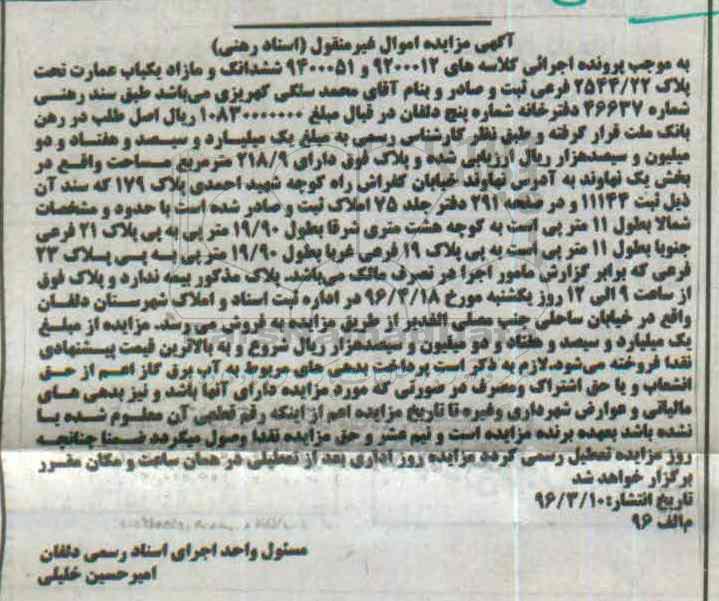 آگهی مزایده اموال غیرمنقول (اسناد رهنی)
به موجب پرونده اجرائی کلاسه های ۹۲۰۰۰۱۲ و ۹۴۰۰۰۵۱ ششدانگ و مازاد یکباب عمارت تحت
پلاک ۲۵۴۴/۲۲ فرعی ثبت و صادر و بنام آقای محمد سلگی کهریزی می‌باشد طبق سند رهنی
شماره ۴۶۶۳۷ دفترخانه شماره پنج دلفان در قبال مبلغ ۱۰۸۳۰۰۰۰۰۰ ریال اصل طلب در رهن
بانک ملت قرار گرفته و طبق نظر کارشناس رسمی به مبلغ یک میلیارد و سیصد و هفتاد و دو
میلیون و سیصدهزار ریال ارزیابی شده و پلاک فوق دارای ۲۱۸/۹ مترمربع مساحت واقع در
بخش یک نهاوند به آدرس نهاوند خیابان کفراش راه کوچه شهید احمدی پلاک ۱۷۹ که سند آن
ذیل ثبت ۱۱۱۴۴ و در صفحه ۲۹۱ دفتر جلد ۷۵ املاک ثبت و صادر شده است با حدود و مشخصات
شمالا بطول ۱۱ متر پی است به کوچه هشت متری شرقا بطول ۱۹/۹۰ متر پی به پی پلاک ۲۱ فرعی
جنوبا بطول ۱۱ متر پی است به پی پلاک ۱۹ فرعی غربا بطول ۱۹/۹۰ متر پی به پی پلاک ۲۳
فرعی که برابر گزارش مامور اجرا در تصرف مالک می‌باشد. پلاک مذکور بیمه ندارد و پلاک فوق
از ساعت ۹ الی ۱۲ روز یکشنبه مورخ ۹۶/۴/۱۸ در اداره ثبت اسناد و املاک شهرستان دلفان
واقع در خیابان ساحلی جنب مصلی الغدیر از طریق مزایده به فروش می رسد. مزایده از مبلغ
یک میلیارد و سیصد و هفتاد و دو میلیون و سیصدهزار ریال شروع و به بالاترین قیمت پیشنهادی
نقدا فروخته می‌شود.لازم به ذکر است پرداخت بدهی های مربوط به آب برق گاز اعم از حق
انشعاب و یا حق اشتراک ومصرف در صورتی که مورد مزایده دارای آنها باشد و نیز بدهی های
مالیاتی و عوارض شهرداری وغیره تا تاریخ مزایده اعم از اینکه رقم قطعی آن معلوم شده یا
نشده باشد بعهده برنده مزایده است و نیم عشر و حق مزایده نقدا وصول میگردد ضمنا چنانچه
روز مزایده تعطیل رسمی گردد مزایده روز اداری بعد از تعطیلی در همان ساعت و مکان مقرر
برگزار خواهد شد
تاریخ انتشار: ۹۶/۳/۱۰
م‌الف ۹۶
مسئول واحد اجرای اسناد رسمی دلفان
امیرحسین خلیلی